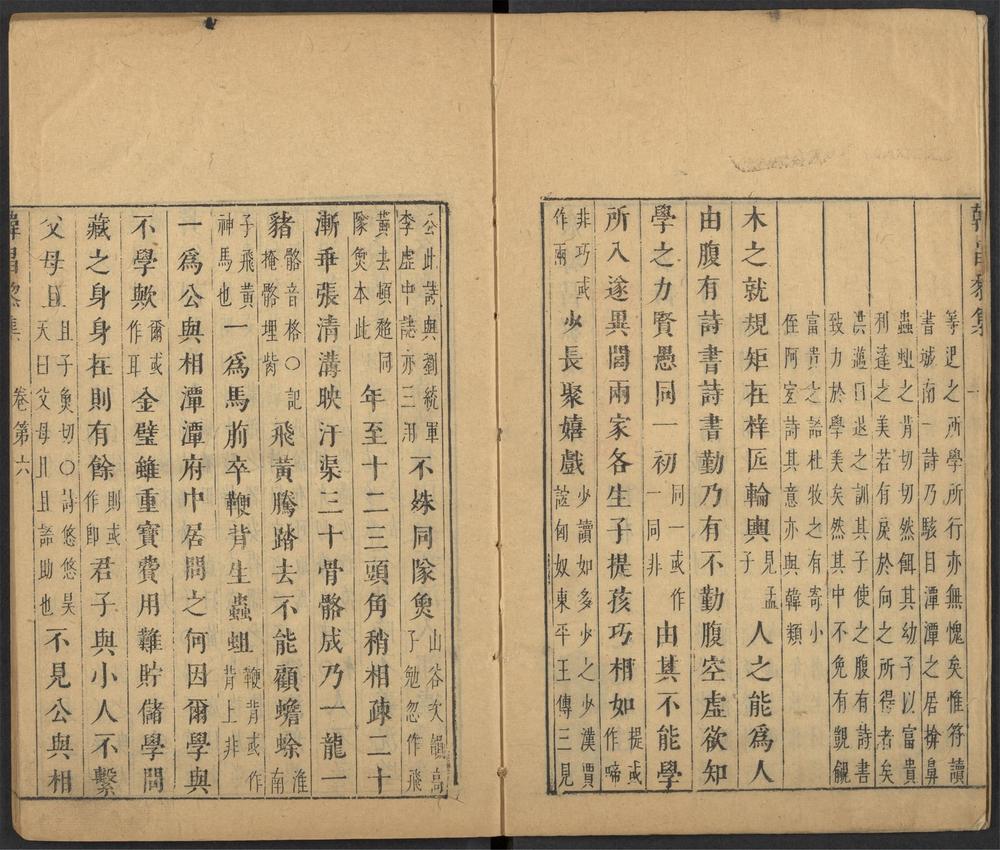 韓昌黎集 一
之所學所行亦無愧矣惟符讀
書城南一詩乃駭目潭潭之居掩鼻
蟲蛆之背切切然餌其幼子以富貴
利達之美若有戾於向之所得者矣
洪曰退之訓其子使之腹有詩書
致力於學美矣然其中不免有覬覦
富貴之語杜牧之有寄小
侄阿宜詩其意亦與韓類
木之就規矩在梓匠輪輿見孟子人之能為人
由腹有詩書詩書勤乃有不勤腹空虛欲知
學之力賢愚同一初同一或作一同非由其不能學
所入遂異閭兩家各生子提孩巧相如提或作啼
非巧或作兩少長聚嬉戲少讀如多少之少漢賈誼匈奴東平王傳三見
公此詩與劉統軍李虛中誌亦三用不殊同隊魚山谷次韻高子勉忽作飛
黃去頓超同隊魚本此年至十二三頭角稍相疎二十
漸乖張清溝映汙渠三十骨骼成乃一龍一
豬骼音格○記掩骼埋胔飛黃騰踏去不能顧蟾蜍淮南
子飛黃神馬也一為馬前卒鞭背生蟲蛆鞭背或作背上非
一為公與相潭潭府中居問之何因爾學與
不學歟爾或作耳金璧雖重寶費用難貯儲學問
藏之身身在則有餘則或作即君子與小人不繫
父母且且子魚切○詩悠悠昊天曰父母且且語助也不見公與相
韓昌黎集 卷第六